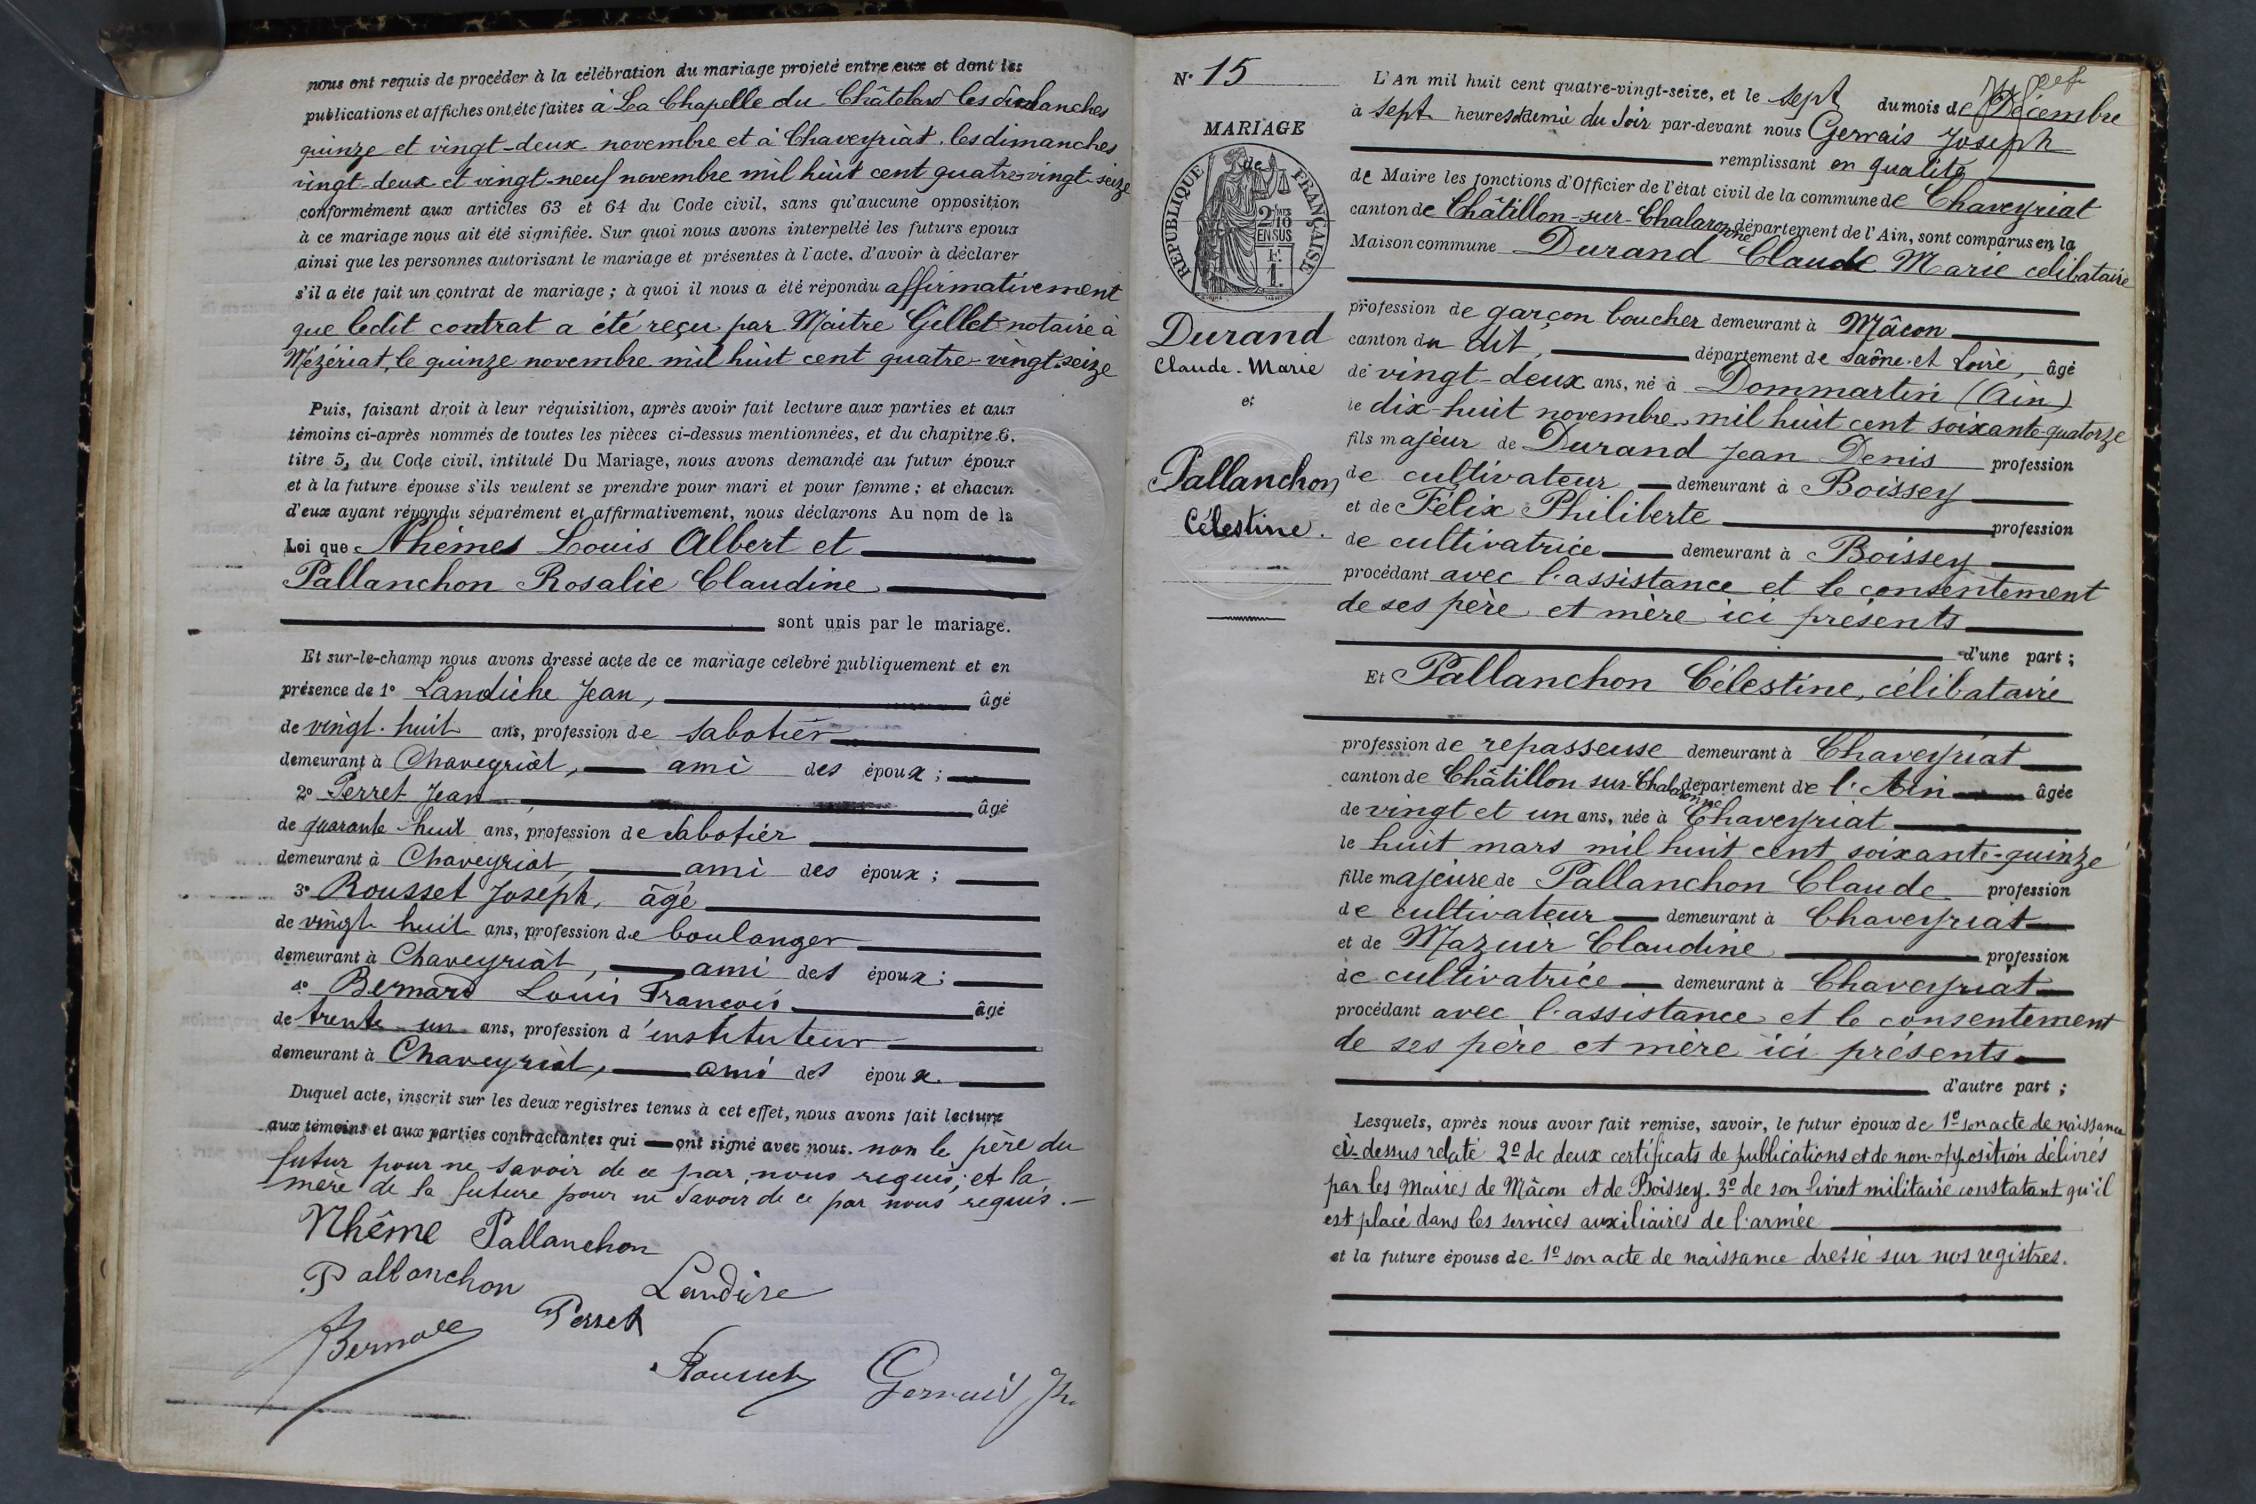 nous ont requis de procéder à la célébration du mariage projeté entre eux et dont les
publications et affiches ont été faites à La Chapelle du Châtelard les dimanches
quinze et vingt-deux novembre et à Chaveyriat, les dimanches
vingt deux et vingt-neuf novembre mil huit cent quatre-vingt-seize
conformément aux articles 63 et 64 du Code civil, sans qu'aucune opposition
à ce mariage nous ait été signifiée. Sur quoi nous avons interpellé les futurs epoux
ainsi que les personnes autorisant le mariage et présentes à l'acte, d'avoir à déclarer
s'il a été fait un contrat de mariage ; à quoi il nous a été répondu affirmativement
que ledit contrat a été reçu par Maitre Gillet notaire à
Mézériat, le quinze novembre mil huit cent quatre-vingt-seize
Puis, faisant droit à leur réquisition, après avoir fait lecture aux parties et aux
témoins ci-après nommés de toutes les pièces ci-dessus mentionnées, et du chapitre 6,
titre 5, du Code civil, intitulé Du Mariage, nous avons demandé au futur époux
et à la future épouse s'ils veulent se prendre pour mari et pour femme ; et chacun
d'eux ayant répondu séparément et affirmativement, nous déclarons Au nom de la
Loi que Nhêmes Louis Albert et
Pallanchon Rosalie Claudine
sont unis par le mariage.
Et sur-le-champ nous avons dressé acte de ce mariage célébré publiquement et en
présence de 1° Landiche Jean, âgé
de vingt-huit ans, profession de sabotier
demeurant à Chaveyriat, ami des époux ;
2° Perret Jean, âgé
de quarante-huit ans, profession de sabotier
demeurant à Chaveyriat, ami des époux ;
3° Rousset Joseph, âgé
de vingt-huit ans, profession de boulanger
demeurant à Chaveyriat, ami des époux ;
4° Bernard Louis François âgé
de trente un ans, profession d'instituteur
demeurant à Chaveyriat, ami des époux.
Duquel acte, inscrit sur les deux registres tenus à cet effet, nous avons fait lecture
aux témoins et aux parties contractantes qui ont signé avec nous. non le père du
futur pour ne savoir de ce par nous requis, et la
mère de la future pour ne savoir de ce par nous requis.
Nhême Pallanchon
Pallanchon Landiche
Bernard Perret
Rousset Gervais Jh.
N° 15
MARIAGE
de
RÉPUBLIQUE FRANÇAISE
2/10 EN SUS
1 F.
Durand
Claude-Marie
et
Pallanchon
Célestine.
L'An mil huit cent quatre-vingt-seize, et le sept du mois de Décembre
à sept heures et demie du soir par-devant nous Gervais Joseph
remplissant en qualité
de Maire les fonctions d'Officier de l'état civil de la commune de Chaveyriat
canton de Châtillon-sur-Chalaronne département de l'Ain, sont comparus en la
Maison commune Durand Claude Marie célibataire
profession de garçon boucher demeurant à Mâcon
canton du dit, département de Saône-et-Loire, âgé
de vingt-deux ans, né à Dommartin (Ain)
le dix-huit novembre mil huit cent soixante-quatorze
fils majeur de Durand Jean Denis profession
de cultivateur demeurant à Boissey
et de Félix Philiberte profession
de cultivatrice demeurant à Boissey
procédant avec l'assistance et le consentement
de ses père et mère ici présents
d'une part ;
Et Pallanchon Célestine, célibataire
profession de repasseuse demeurant à Chaveyriat
canton de Châtillon sur-Chalaronne département de l'Ain âgée
de vingt et un ans, née à Chaveyriat
le huit mars mil huit cent soixante-quinze
fille majeure de Pallanchon Claude profession
de cultivateur demeurant à Chaveyriat
et de Mazuir Claudine profession
de cultivatrice demeurant à Chaveyriat
procédant avec l'assistance et le consentement
de ses père et mère ici présents
d'autre part ;
Lesquels, après nous avoir fait remise, savoir, le futur époux de 1° son acte de naissance
ci-dessus relaté 2° de deux certificats de publications et de non-opposition délivrés
par les Maires de Mâcon et de Boissey. 3° de son livret militaire constatant qu'il
est placé dans les services auxiliaires de l'armée
et la future épouse de 1° son acte de naissance dressé sur nos registres.